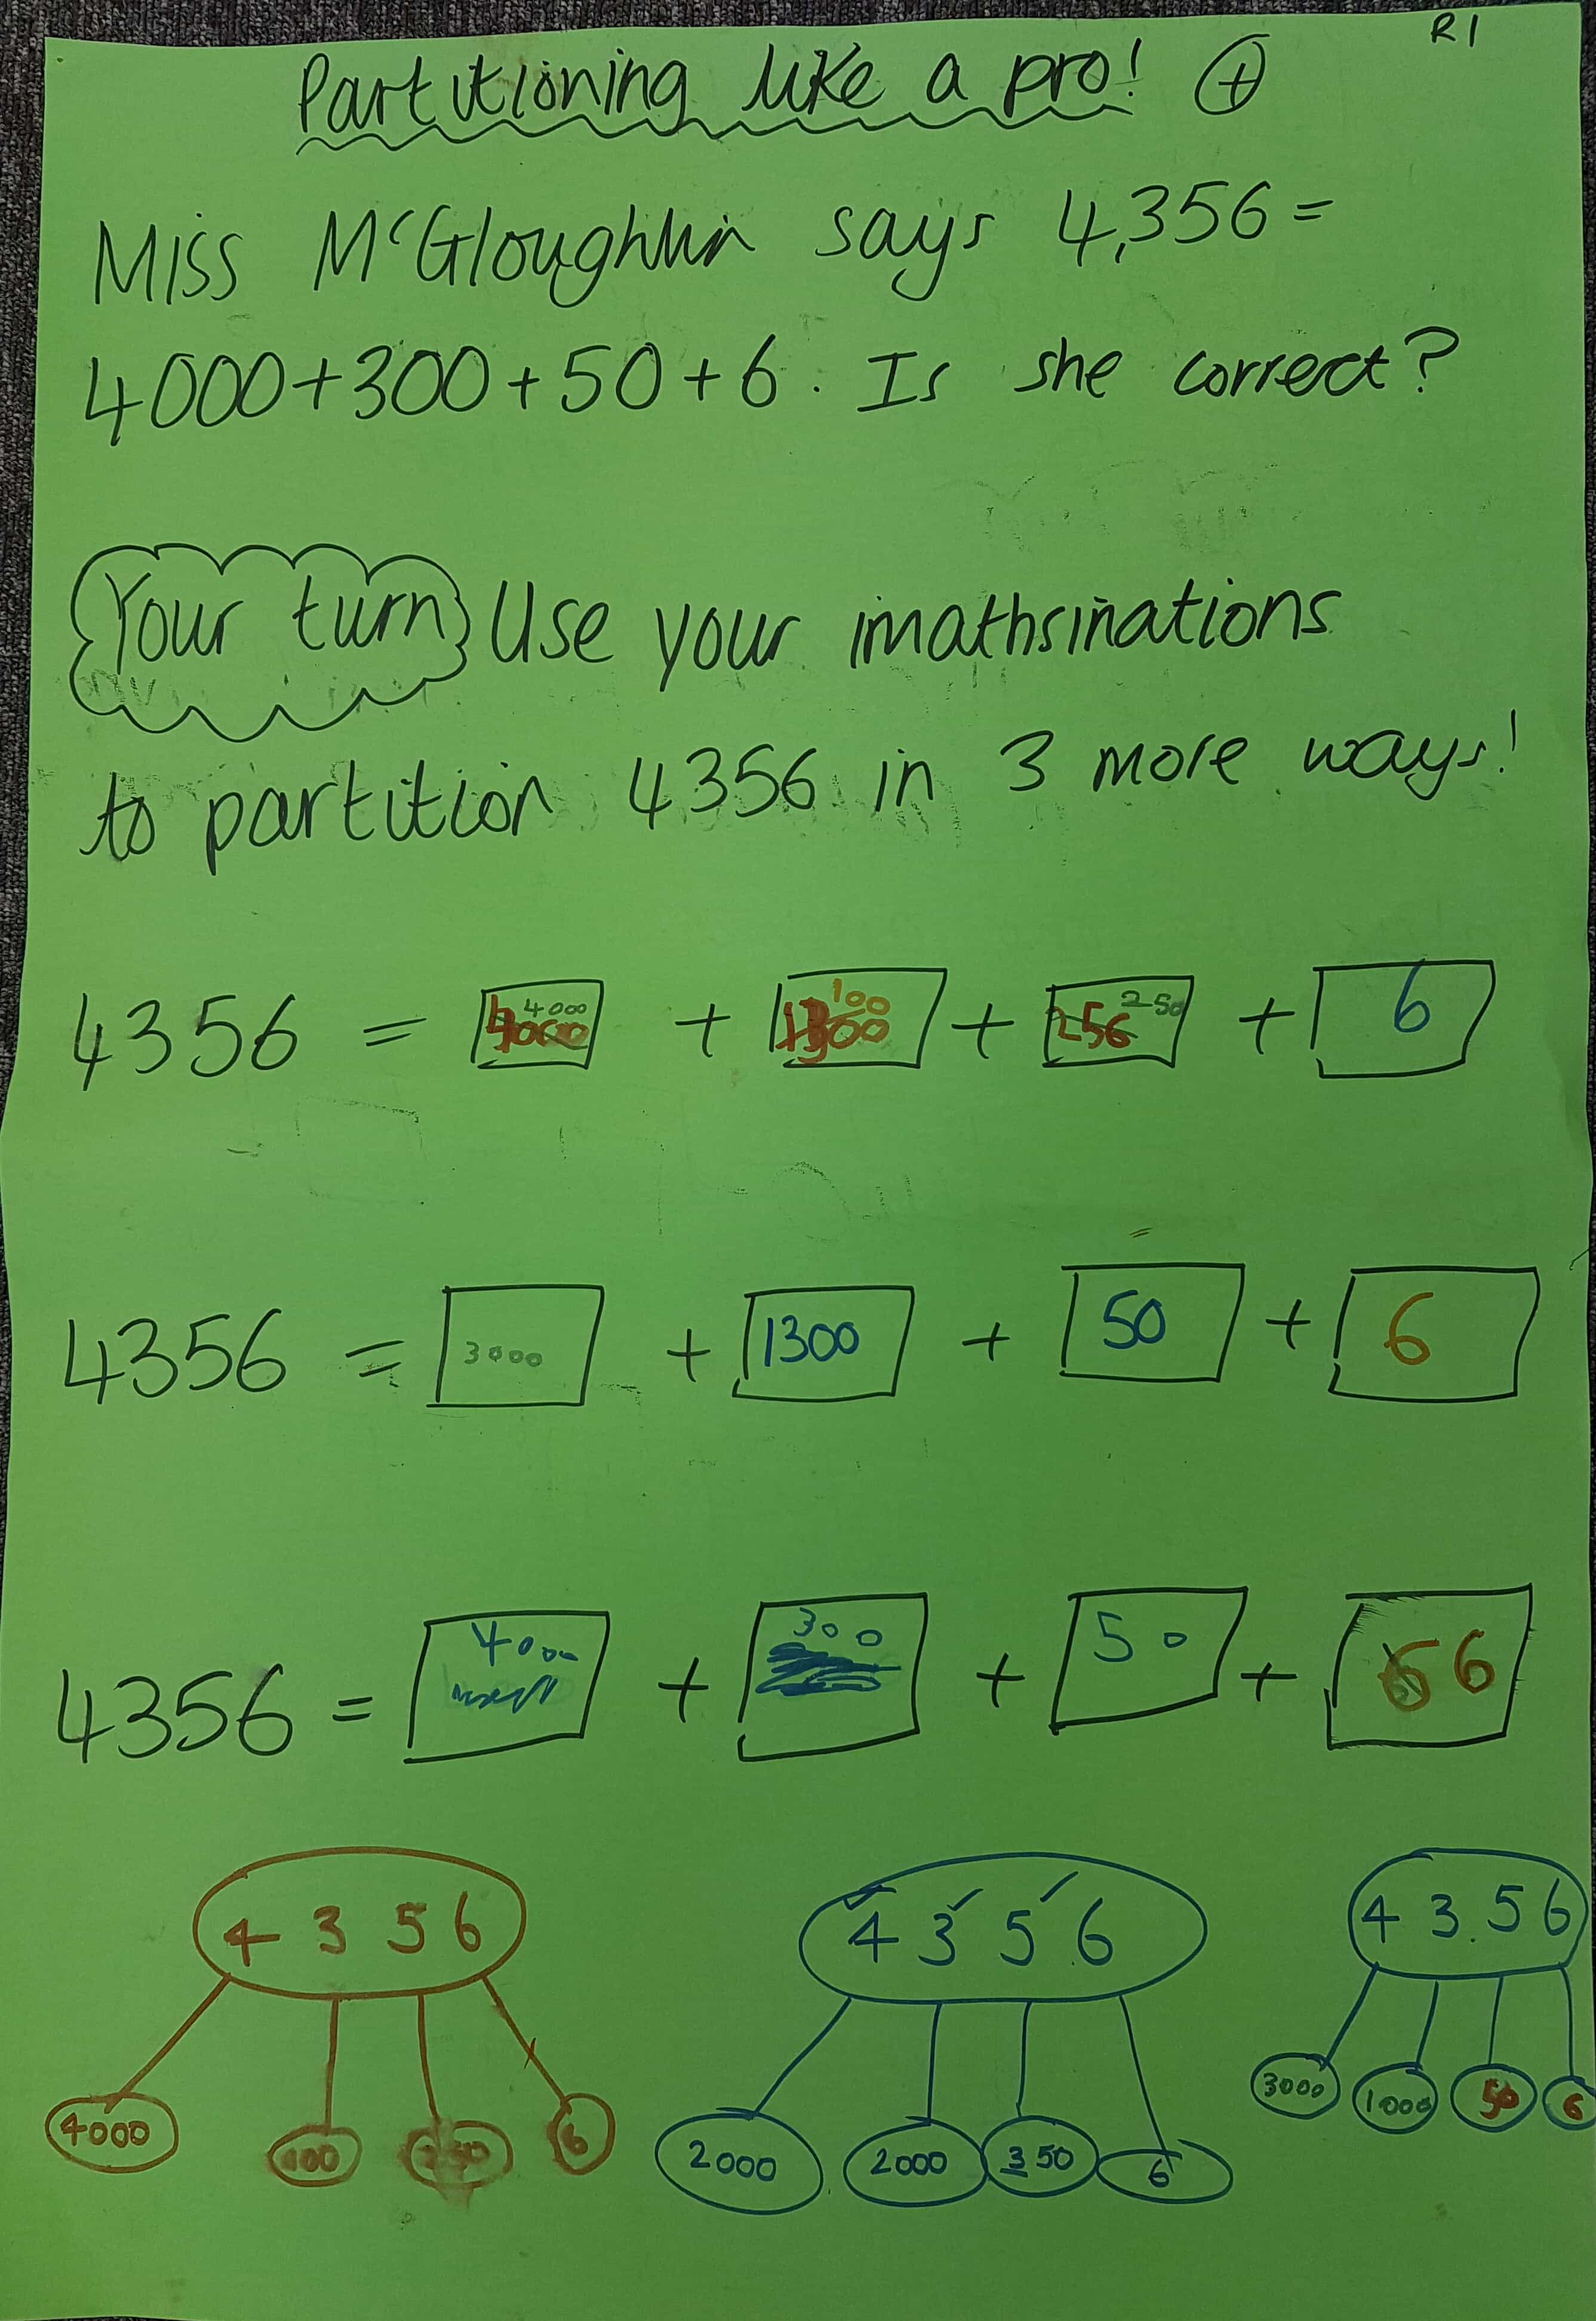 R1
Partitioning like a pro! +
Miss McGloughlin says 4,356 =
4000+300+50+6. Is she correct?
Your turn Use your imathsinations
to partition 4356 in 3 more ways!
4356 = 4000 + 100 + 250 + 6
4356 = 3000 + 1300 + 50 + 6
4356 = 4000 + 300 + 50 + 6
4356 4356 43.56
4000 100 250 6 2000 2000 350 6 3000 1000 50 6